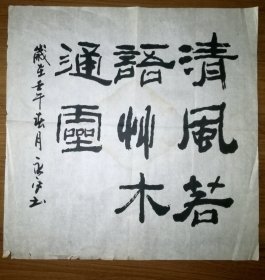 清風若
語艸木
通靈
歲在壬午春月